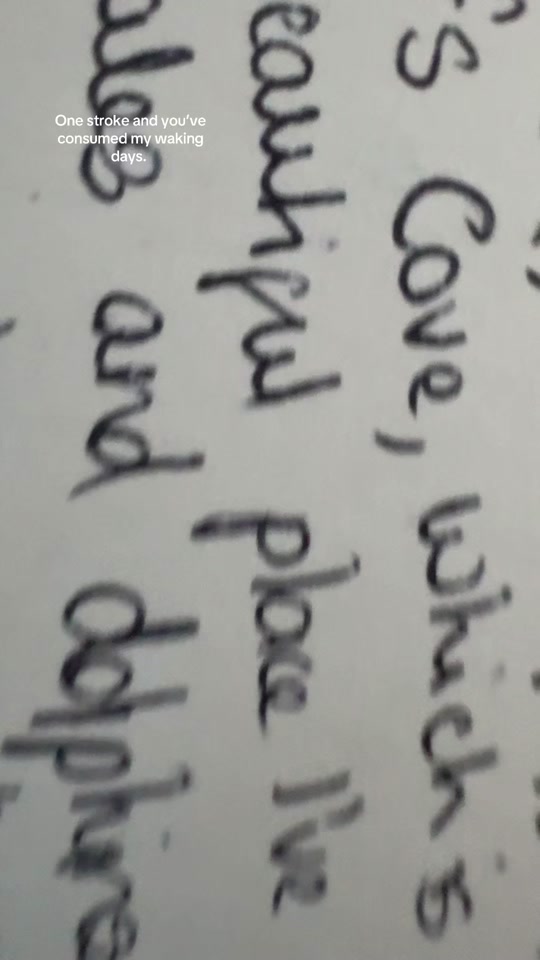 's Cove, which is
eautiful place I've
ales and dolphins
One stroke and you've
consumed my waking
days.